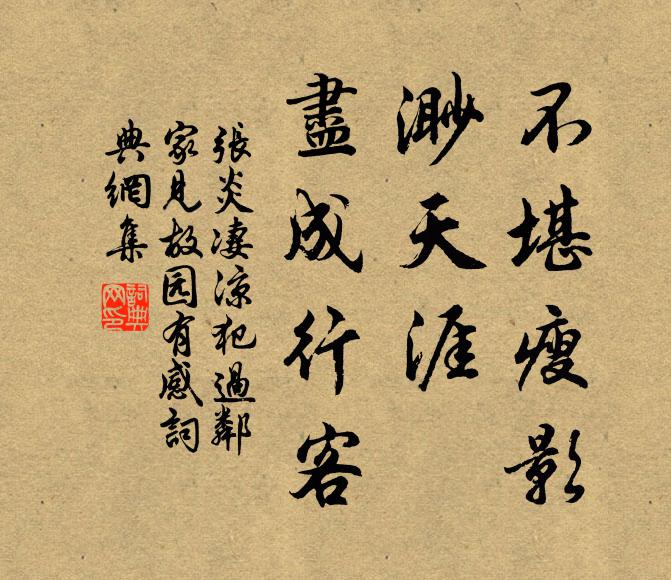 不堪瘦影
渺天涯
盡成行客
張炎淒涼犯過鄰
家見故园有感詞
典網集
詞典
网印